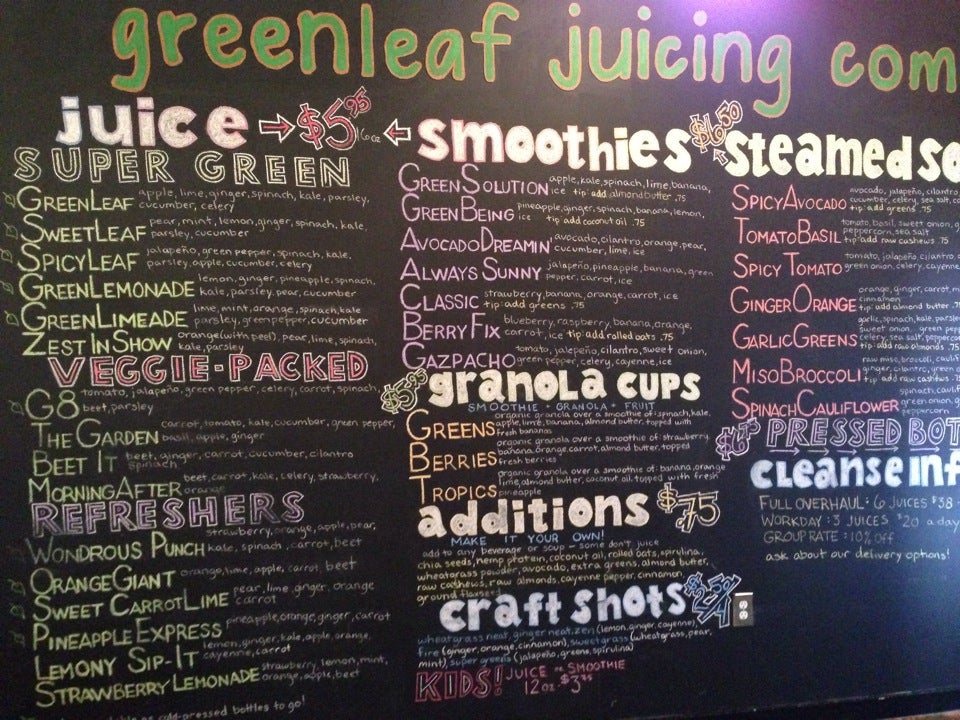 greenleaf juicing com
juice → $5.95 16oz ←
SUPER GREEN
GREENLEAF apple, lime, ginger, spinach, kale, parsley,
cucumber, celery
SWEETLEAF pear, mint, lemon, ginger, spinach, kale,
parsley, cucumber
SPICYLEAF jalapeño, green pepper, spinach, kale,
parsley, apple, cucumber, celery
GREENLEMONADE lemon, ginger, pineapple, spinach,
kale, parsley, pear, cucumber
GREENLIMEADE lime, mint, orange, spinach, kale
parsley, green pepper, cucumber
ZEST IN SHOW orange (with peel), pear, lime, spinach,
kale, parsley
VEGGIE-PACKED
G8 tomato, jalapeño, green pepper, celery, carrot, spinach,
beet, parsley
THE GARDEN carrot, tomato, kale, cucumber, green pepper,
basil, apple, ginger
BEET IT beet, ginger, carrot, cucumber, cilantro
spinach
MORNINGAFTER beet, carrot, kale, celery, strawberry,
orange
REFRESHERS
WONDROUS PUNCH strawberry, orange, apple, pear,
kale, spinach, carrot, beet
ORANGEGIANT orange, lime, apple, carrot, beet
SWEET CARROTLIME pear, lime, ginger, orange
carrot
PINEAPPLEEXPRESS pineapple, orange, ginger, carrot
LEMONY SIP-IT lemon, ginger, kale, apple, orange,
cayenne, carrot
STRAWBERRY LEMONADE strawberry, lemon, mint,
orange, apple, beet
as cold-pressed bottles to go!
smoothies $6.50
GREENSOLUTION apple, kale, spinach, lime, banana,
ice tip: add almond butter .75
GREENBEING pineapple, ginger, spinach, banana, lemon,
ice tip: add coconut oil .75
AVOCADODREAMIN' avocado, cilantro, orange, pear,
cucumber, lime, ice
ALWAYS SUNNY jalapeño, pineapple, banana, green
pepper, carrot, ice
CLASSIC strawberry, banana, orange, carrot, ice
tip: add greens .75
BERRYFIX blueberry, raspberry, banana, orange,
carrot, ice tip: add rolled oats .75
GAZPACHO tomato, jalepeño, cilantro, sweet onion,
green pepper, celery, cayenne, ice
$5.95 granola cups
SMOOTHIE + GRANOLA + FRUIT
GREENS organic granola over a smoothie of: spinach, kale,
apple, lime, banana, almond butter, topped with
fresh bananas
BERRIES organic granola over a smoothie of: strawberry
banana, orange, carrot, almond butter, topped
fresh berries
TROPICS organic granola over a smoothie of: banana, orange
lime, almond butter, coconut oil, topped with fresh
pineapple
additions $.75
MAKE IT YOUR OWN!
add to any beverage or soup - some don't juice
chia seeds, hemp protein, coconut oil, rolled oats, spirulina,
wheatgrass powder, avocado, extra greens, almond butter,
raw cashews, raw almonds, cayenne pepper, cinnamon,
ground flaxseed
craft shots
wheatgrass neat, ginger neat, zen (lemon, ginger, cayenne),
fire (ginger, orange, cinnamon), sweetgrass (wheatgrass, pear,
mint), super greens (jalapeño, greens, spirulina)
KIDS! JUICE or SMOOTHIE
12oz - $3.75
steamed so
SPICYAVOCADO avocado, jalapeño, cilantro
cucumber, celery, sea salt,
tip: add greens .75
TOMATOBASIL tomato basil, sweet onion,
peppercorn, sea salt
tip: add raw cashews .75
SPICY TOMATO tomato, jalapeño, cilantro,
green onion, celery, cayenne
GINGERORANGE orange, ginger, carrot,
cinnamon
tip: add almond butter .75
GARLICGREENS garlic, spinach, kale, parsley,
sweet onion, green pepp
celery, sea salt, pepperco
tip: add raw almonds .75
MISOBROCCOLI raw miso, broccoli, caulif
ginger, cilantro, green
tip: add raw cashews .75
SPINACHCAULIFLOWER spinach, caulif
green onion,
peppercorn
PRESSED BOT
cleanse inf
FULL OVERHAUL: 6 JUICES $38
WORKDAY: 3 JUICES $20 a day
GROUP RATE: 10% off
ask about our delivery options!